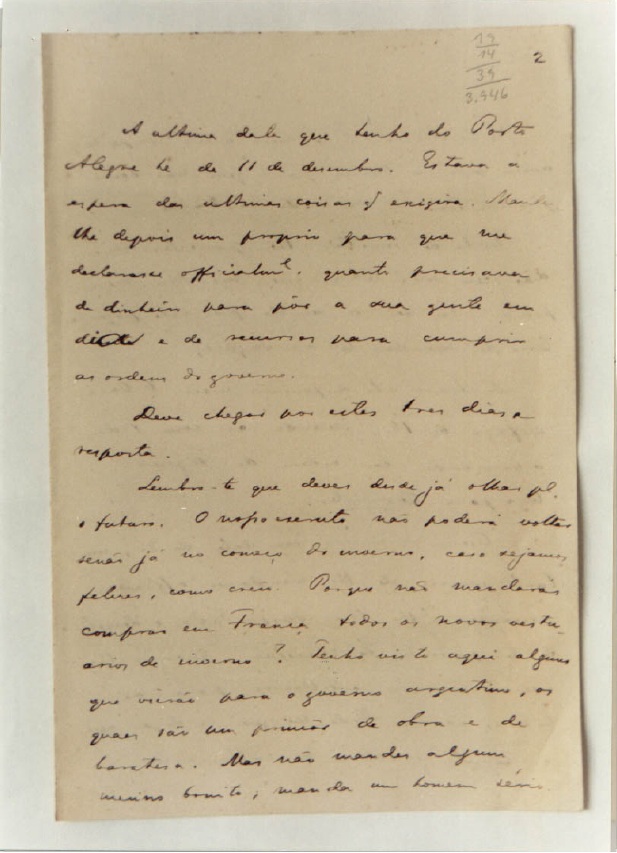 19
14
39
3.946
2
A ultima data que tenho do Porto
Alegre he de 11 de desembro. Estava a
espera das ultimas coisas q̃ exigira. Mandei
lhe depois um proprio para que me
declarasse officialmte. quanto precisava
de dinheiro para pôr a sua gente em
e de recursos para cumprir
as ordens do governo.
Deve chegar por estes tres dias a
resposta.
Lembro-te que deves desde já olhar pa.
o futuro. O nosso exercito não poderá voltar
senão já no começo do inverno, caso sejamos
felises, como creio. Porque não mandarás
comprar em França todos os novos vestu-
arios de inverno? Tenho visto aqui alguns
que vierão para o governo argentino, os
quaes são um primôr de obra e de
baratesa. Mas não mandes algum
menino bonito; manda um homem serio.